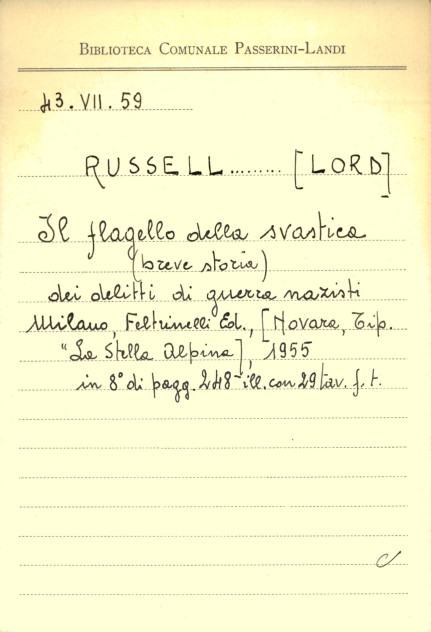 BIBLIOTECA COMUNALE PASSERINI-LANDI
43.VII.59
RUSSELL......... [LORD]
Il flagello della svastica
(breve storia)
dei delitti di guerra nazisti
Milano, Feltrinelli Ed., [Novara, Tip.
"La Stella Alpina], 1955
in 8° di pagg. 248-ill. con 29 tav. f. t.